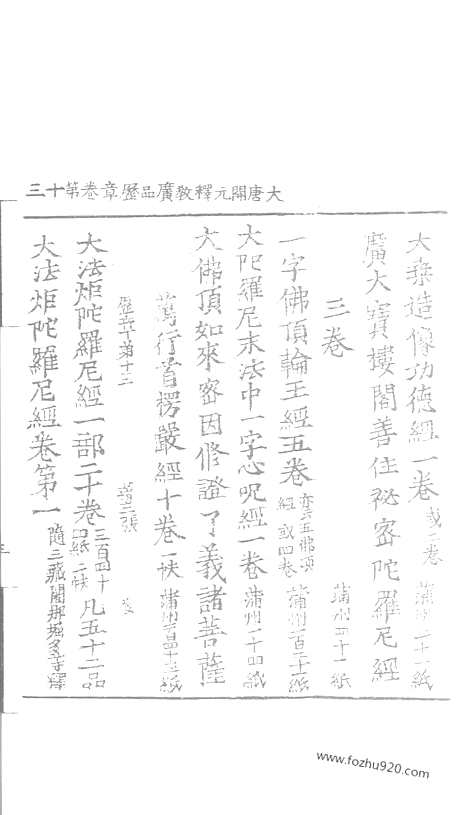 大唐開元釋教廣品歷章卷第十三
大乘造像功德經一卷或二卷 蒲州二十一紙
廣大寶摟閣善住秘密陀羅尼經
三卷 蒲州四十一紙
一字佛頂輪王經五卷 經或四卷 蒲州一百二十紙
大陀羅尼末法中一字心呪經一卷 蒲州二十四紙
大佛頂如來密因修證了義諸菩薩
萬行首楞嚴經十卷 一帙 蒲州一百四十五紙
歷章第十三 第三張
大法炬陀羅尼經一部二十卷 三百四十四紙二帙 凡五十二品
大法炬陀羅尼經卷第一 隨三藏闍那堀多等譯
www.fozhu920.com